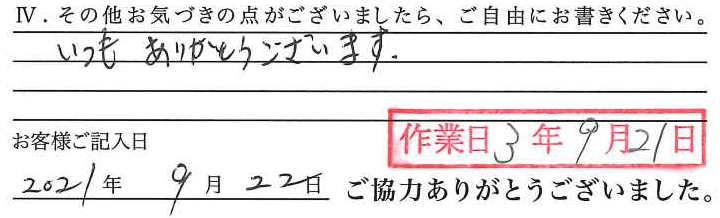 Ⅳ．その他お気づきの点がございましたら、ご自由にお書きください。
いつも ありがとうございます.
お客様ご記入日
作業日 3 年 9 月 21 日
2021 年 9 月 22 日 ご協力ありがとうございました。